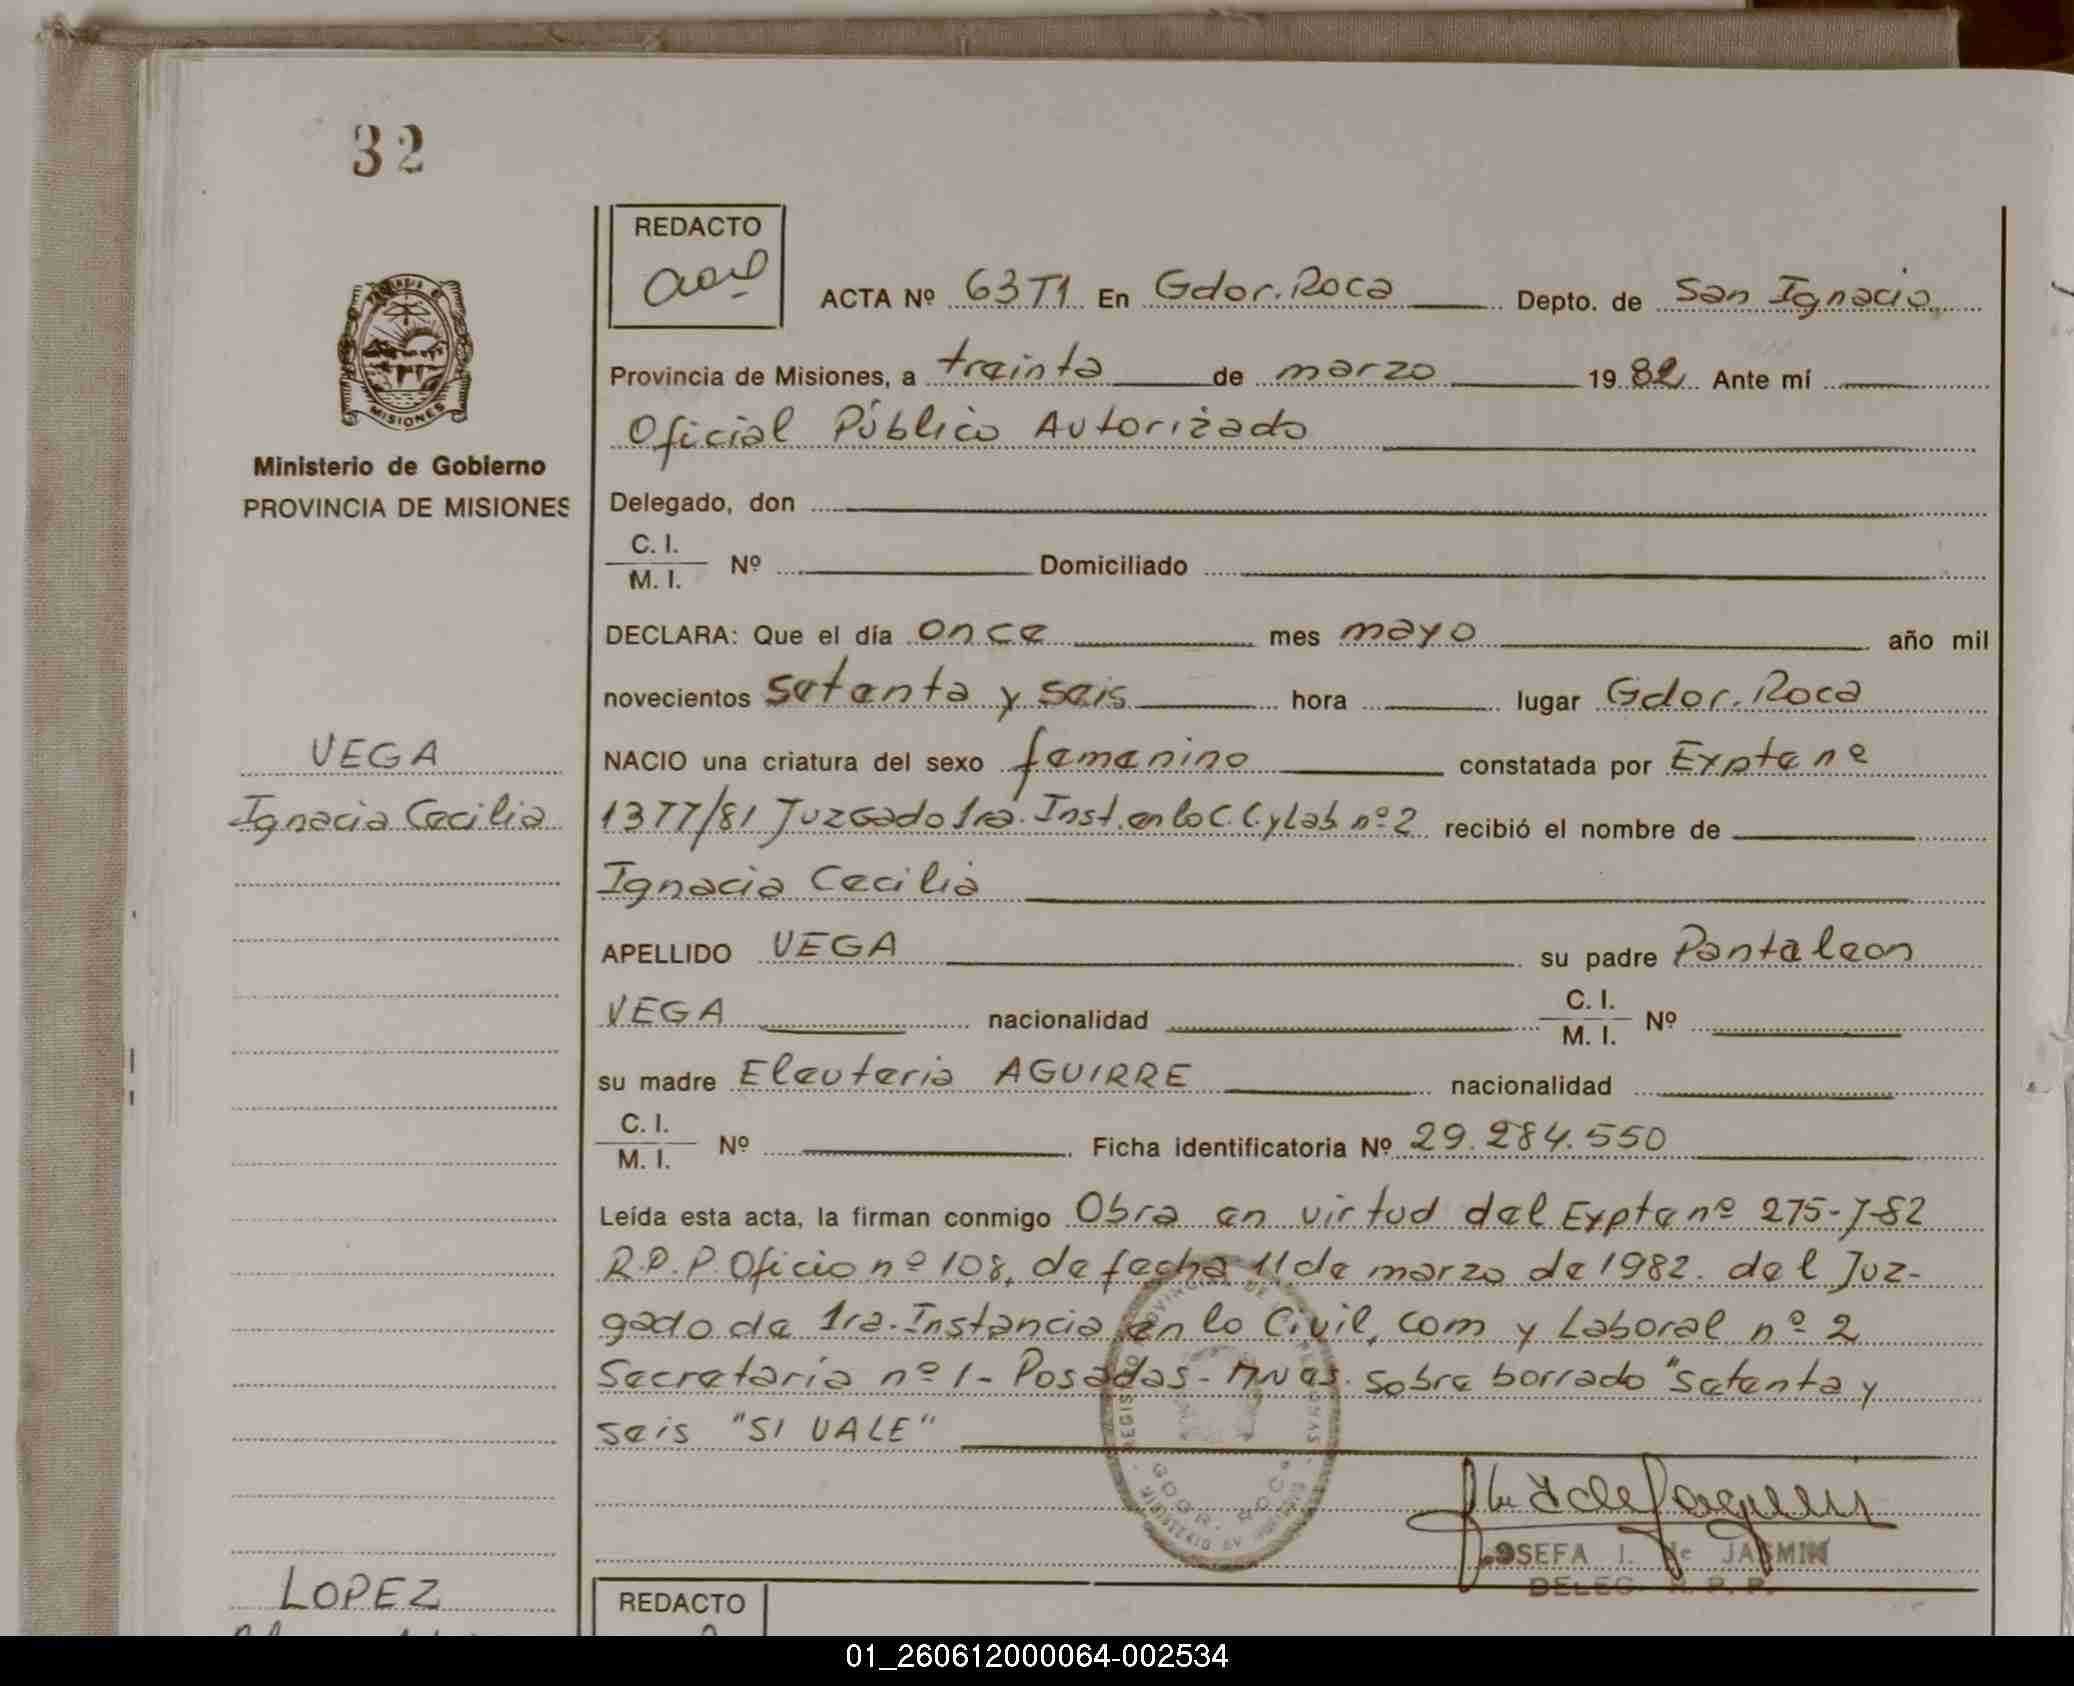 32
REDACTO
ACTA Nº 63T1 En Gdor. Roca Depto. de San Ignacio
MISIONES
Provincia de Misiones, a treinta de marzo 1982 Ante mí
Oficial Público Autorizado
Ministerio de Gobierno
PROVINCIA DE MISIONES
Delegado, don
C. I.
M. I. Nº Domiciliado
DECLARA: Que el día once mes mayo año mil
novecientos setenta y seis hora lugar Gdor. Roca
VEGA
NACIO una criatura del sexo femenino constatada por Expte nº
Ignacia Cecilia
1377/81 Juzgado 1ra. Inst. en lo C. C. y Lab nº 2 recibió el nombre de
Ignacia Cecilia
APELLIDO VEGA su padre Pantaleon
VEGA nacionalidad C. I. M. I. Nº
su madre Eleuteria AGUIRRE nacionalidad
C. I.
M. I. Nº Ficha identificatoria Nº 29.284.550
Leída esta acta, la firman conmigo Obra en virtud del Expte nº 275-J-82
R.P.P. Oficio nº 108, de fecha 11 de marzo de 1982. del Juz-
gado de 1ra. Instancia en lo Civil, Com y Laboral nº 2
Secretaría nº 1 - Posadas - Mnes. sobre borrado "setenta y
seis "SI VALE"
GDOR. ROCA
JOSEFA I. de JASMIN
DELEG. R. P. P.
LOPEZ
REDACTO
01_260612000064-002534